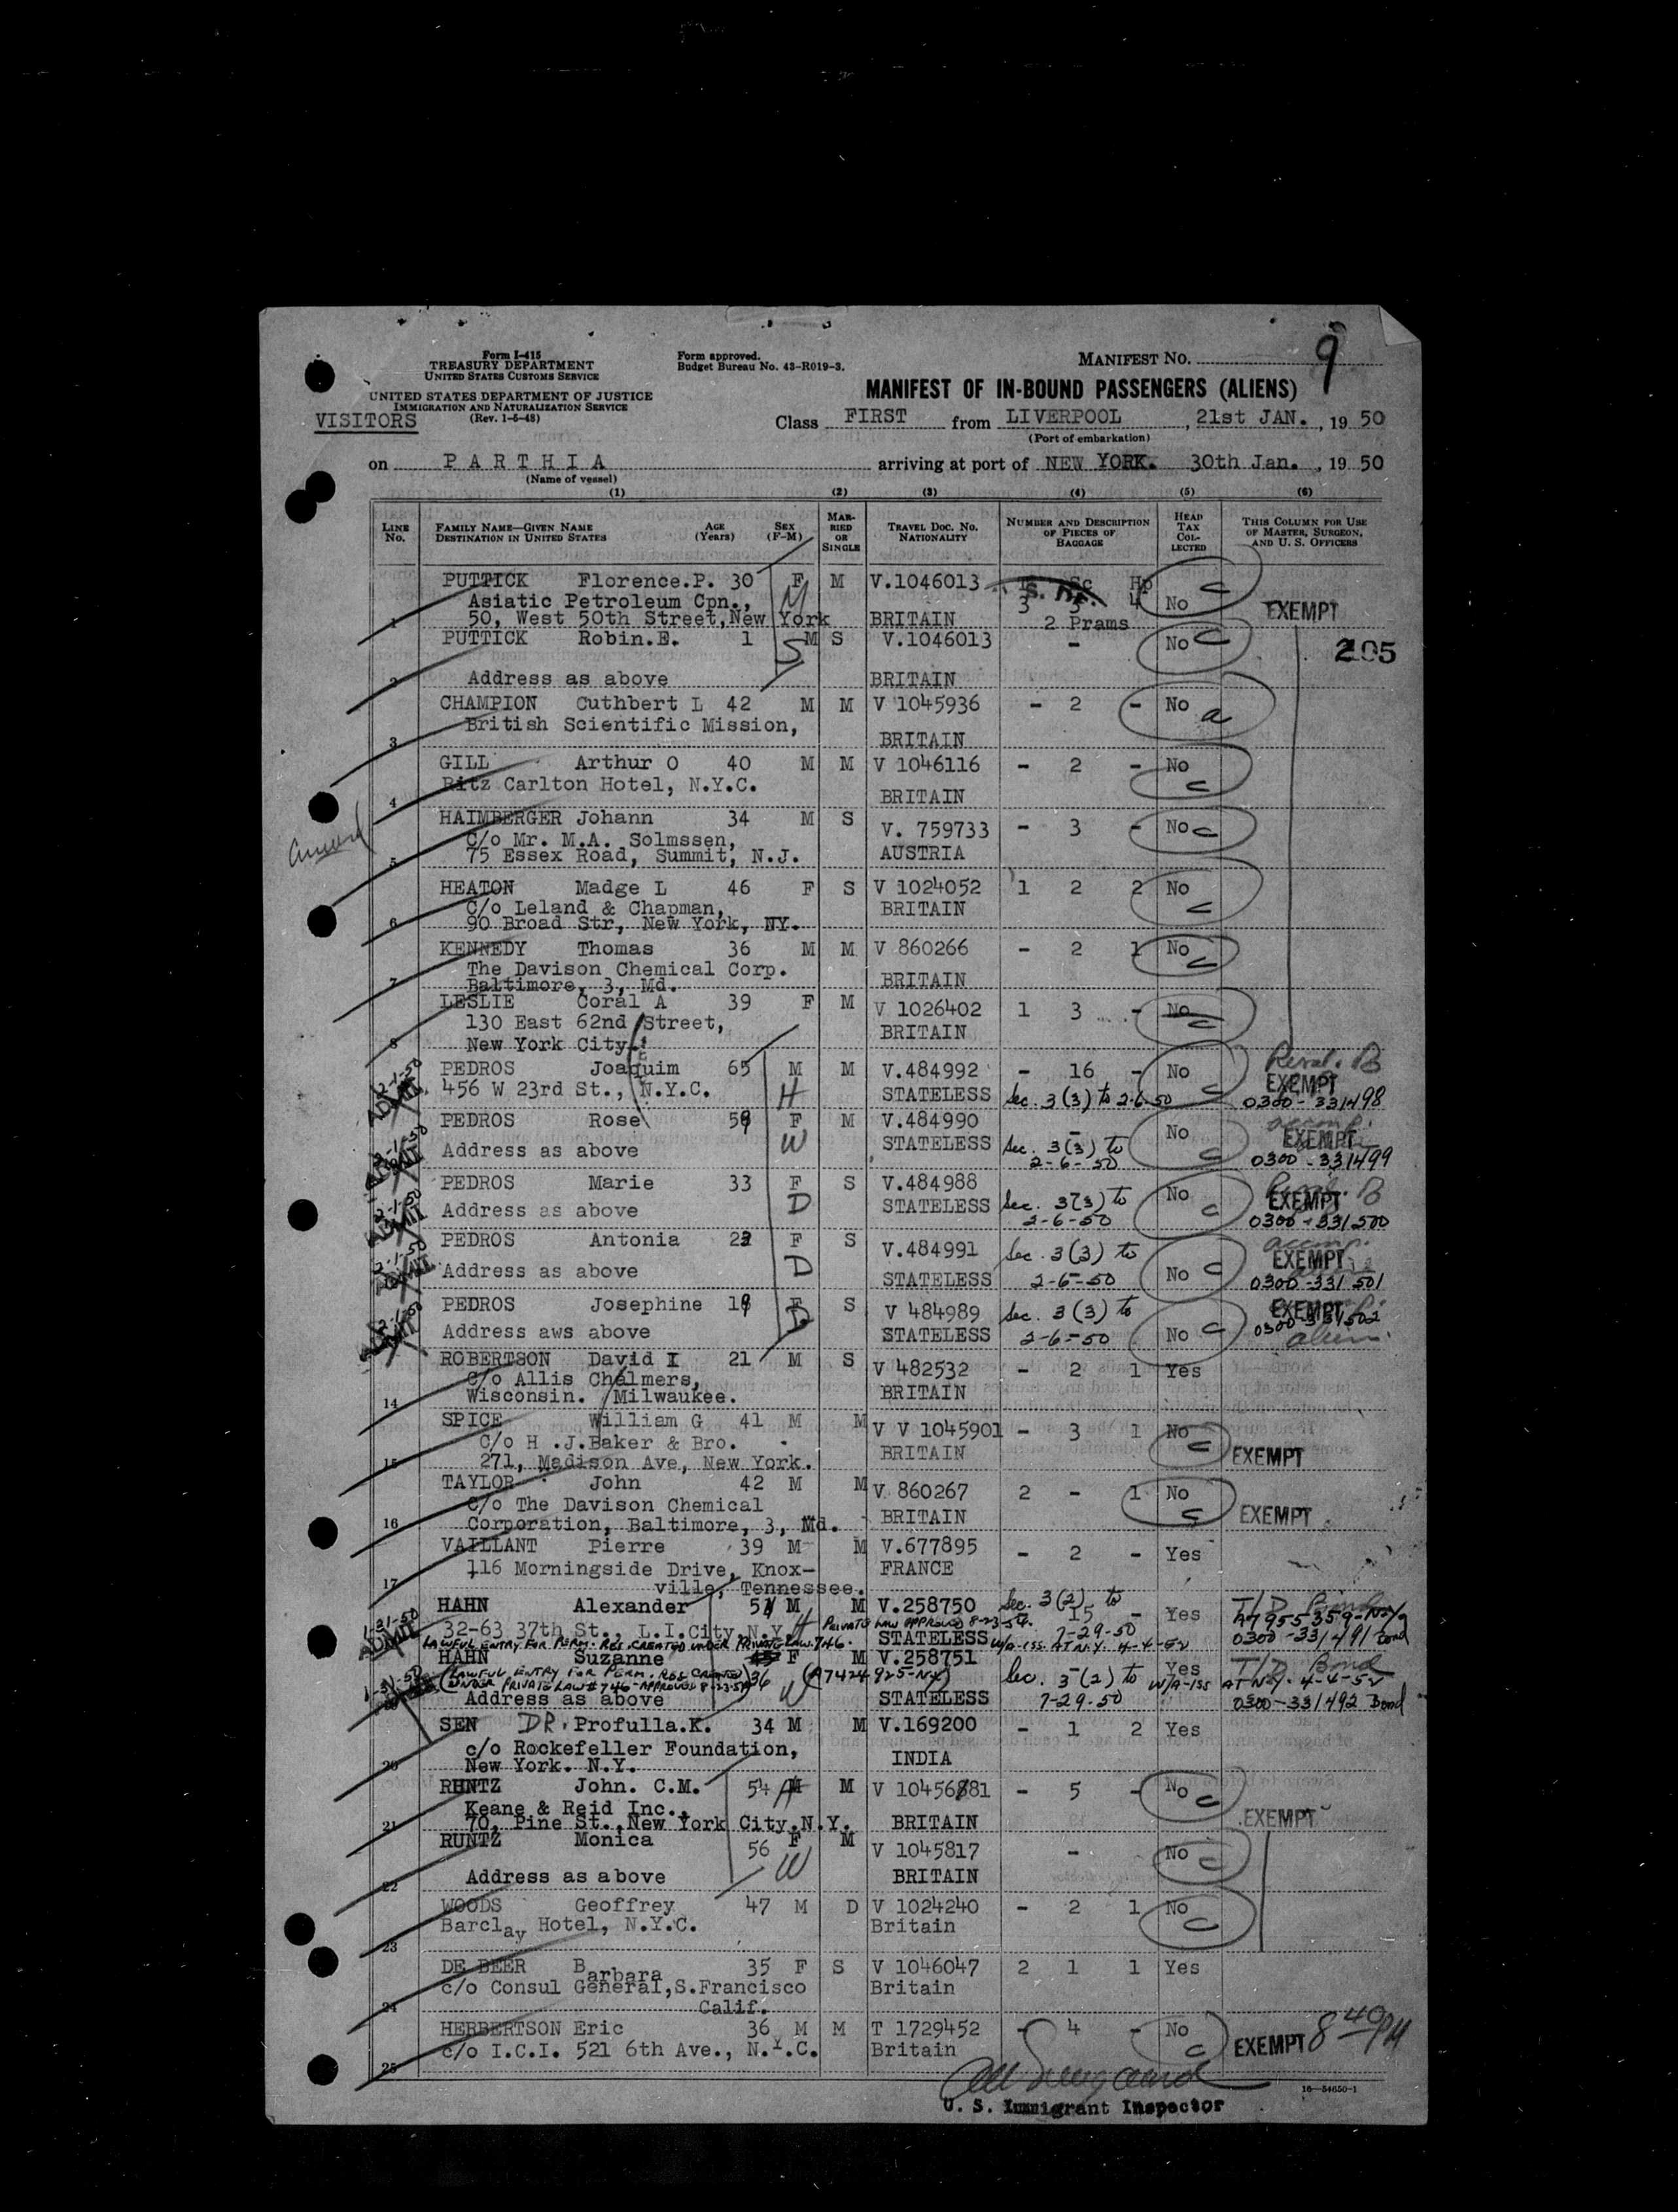 9
Form I-415
TREASURY DEPARTMENT
UNITED STATES CUSTOMS SERVICE
Form approved.
Budget Bureau No. 43-R019-3.
MANIFEST NO.
UNITED STATES DEPARTMENT OF JUSTICE
IMMIGRATION AND NATURALIZATION SERVICE
(Rev. 1-6-48)
MANIFEST OF IN-BOUND PASSENGERS (ALIENS)
VISITORS
Class FIRST from LIVERPOOL, 21st JAN., 19 50
(Port of embarkation)
on PARTHIA arriving at port of NEW YORK. 30th Jan., 19 50
(Name of vessel)
(1) (2) (3) (4) (5) (6)
LINE No. FAMILY NAME—GIVEN NAME DESTINATION IN UNITED STATES AGE (Years) SEX (F-M) MARRIED OR SINGLE TRAVEL DOC. NO. NATIONALITY NUMBER AND DESCRIPTION OF PIECES OF BAGGAGE HEAD TAX COLLECTED THIS COLUMN FOR USE OF MASTER, SURGEON, AND U. S. OFFICERS
PUTTICK Florence.P. 30 F M V.1046013 Sc Hp C
Asiatic Petroleum Cpn., M 3 3 4 No EXEMPT
1 50, West 50th Street,New York BRITAIN 2 Prams
PUTTICK Robin.E. 1 M S V.1046013 - No C 205
S
2 Address as above BRITAIN
CHAMPION Cuthbert L 42 M M V 1045936 - 2 - No a
British Scientific Mission,
3 BRITAIN
GILL Arthur O 40 M M V 1046116 - 2 - No
Ritz Carlton Hotel, N.Y.C. C
4 BRITAIN
HAIMBERGER Johann 34 M S V. 759733 - 3 - No C
C/o Mr. M.A. Solmssen,
5 75 Essex Road, Summit, N.J. AUSTRIA
HEATON Madge L 46 F S V 1024052 1 2 2 No
C/o Leland & Chapman, BRITAIN C
6 90 Broad Str, New York, NY.
KENNEDY Thomas 36 M M V 860266 - 2 1 No
The Davison Chemical Corp. C
7 Baltimore, 3, Md. BRITAIN
LESLIE Coral A 39 F M V 1026402 1 3 - No
130 East 62nd Street, BRITAIN C
8 New York City.
PEDROS Joaquim 65 M M V.484992 - 16 - No
2-1-50 ADMIT 456 W 23rd St., N.Y.C. H STATELESS Sec. 3(3) to 2-6-50 C EXEMPT 0300-331498
PEDROS Rose 59 F M V.484990 - No
2-1-50 ADMIT Address as above W STATELESS Sec. 3(3) to 2-6-50 C EXEMPT 0300-331499
PEDROS Marie 33 F S V.484988 No
2-1-50 ADMIT Address as above D STATELESS Sec. 3(3) to 2-6-50 C EXEMPT 0300-331500
PEDROS Antonia 22 F S V.484991 Sec. 3(3) to accomp.
2-1-50 ADMIT Address as above D STATELESS 2-6-50 No C EXEMPT 0300-331501
PEDROS Josephine 19 F S V 484989 Sec. 3(3) to EXEMPT 0300-331502
2-1-50 ADMIT Address aws above D STATELESS 2-6-50 No C alien.
ROBERTSON David I 21 M S V 482532 - 2 1 Yes
C/o Allis Chalmers,
14 Wisconsin. Milwaukee. BRITAIN
SPICE William G 41 M M V V 1045901 - 3 1 No
C/o H .J.Baker & Bro. C
15 271, Madison Ave, New York. BRITAIN EXEMPT
TAYLOR John 42 M M V 860267 2 - 1 No
C/o The Davison Chemical C
16 Corporation, Baltimore, 3, Md. BRITAIN EXEMPT
VAILLANT Pierre 39 M M V.677895 - 2 - Yes
116 Morningside Drive, Knox- FRANCE
17 ville, Tennessee.
HAHN Alexander 51 M M V.258750 Sec. 3(2) to 15 - Yes T/D Bond
1-31-50 ADMIT 32-63 37th St., L.I.City,N.Y. H PRIVATE LAW APPROVED 8-23-54. STATELESS 7-29-50 0300-331491 Bond
LAWFUL ENTRY FOR PERM. RES. CREATED UNDER PRIVATE LAW.746. W/A-ISS. AT N.Y. 4-4-52
HAHN Suzanne F M V.258751 - Yes T/D Bond
1-31-50 (LAWFUL ENTRY FOR PERM. RES. CREATED 36 (A7424925-NY) Sec. 3(2) to W/A-ISS AT N.Y. 4-4-52
UNDER PRIVATE LAW #746-APPROVED 8-23-54)
Address as above W STATELESS 7-29-50 0300-331492 Bond
SEN DR. Profulla.K. 34 M M V.169200 - 1 2 Yes
c/o Rockefeller Foundation,
20 New York. N.Y. INDIA
RUNTZ John. C.M. 54 M H M V 1045681 - 5 - No C
Keane & Reid Inc.,
21 70, Pine St.,New York City.N.Y. BRITAIN EXEMPT
RUNTZ Monica 56 F M V 1045817 - No
W C
22 Address as above BRITAIN
WOODS Geoffrey 47 M D V 1024240 - 2 1 No
23 Barclay Hotel, N.Y.C. Britain C
DE BEER Barbara 35 F S V 1046047 2 1 1 Yes
c/o Consul General,S.Francisco Britain
24 Calif.
HERBERTSON Eric 36 M M T 1729452 - 4 - No
25 c/o I.C.I. 521 6th Ave., N.Y.C. Britain C EXEMPT 8 40 PM
U. S. Immigrant Inspector
16—54650-1